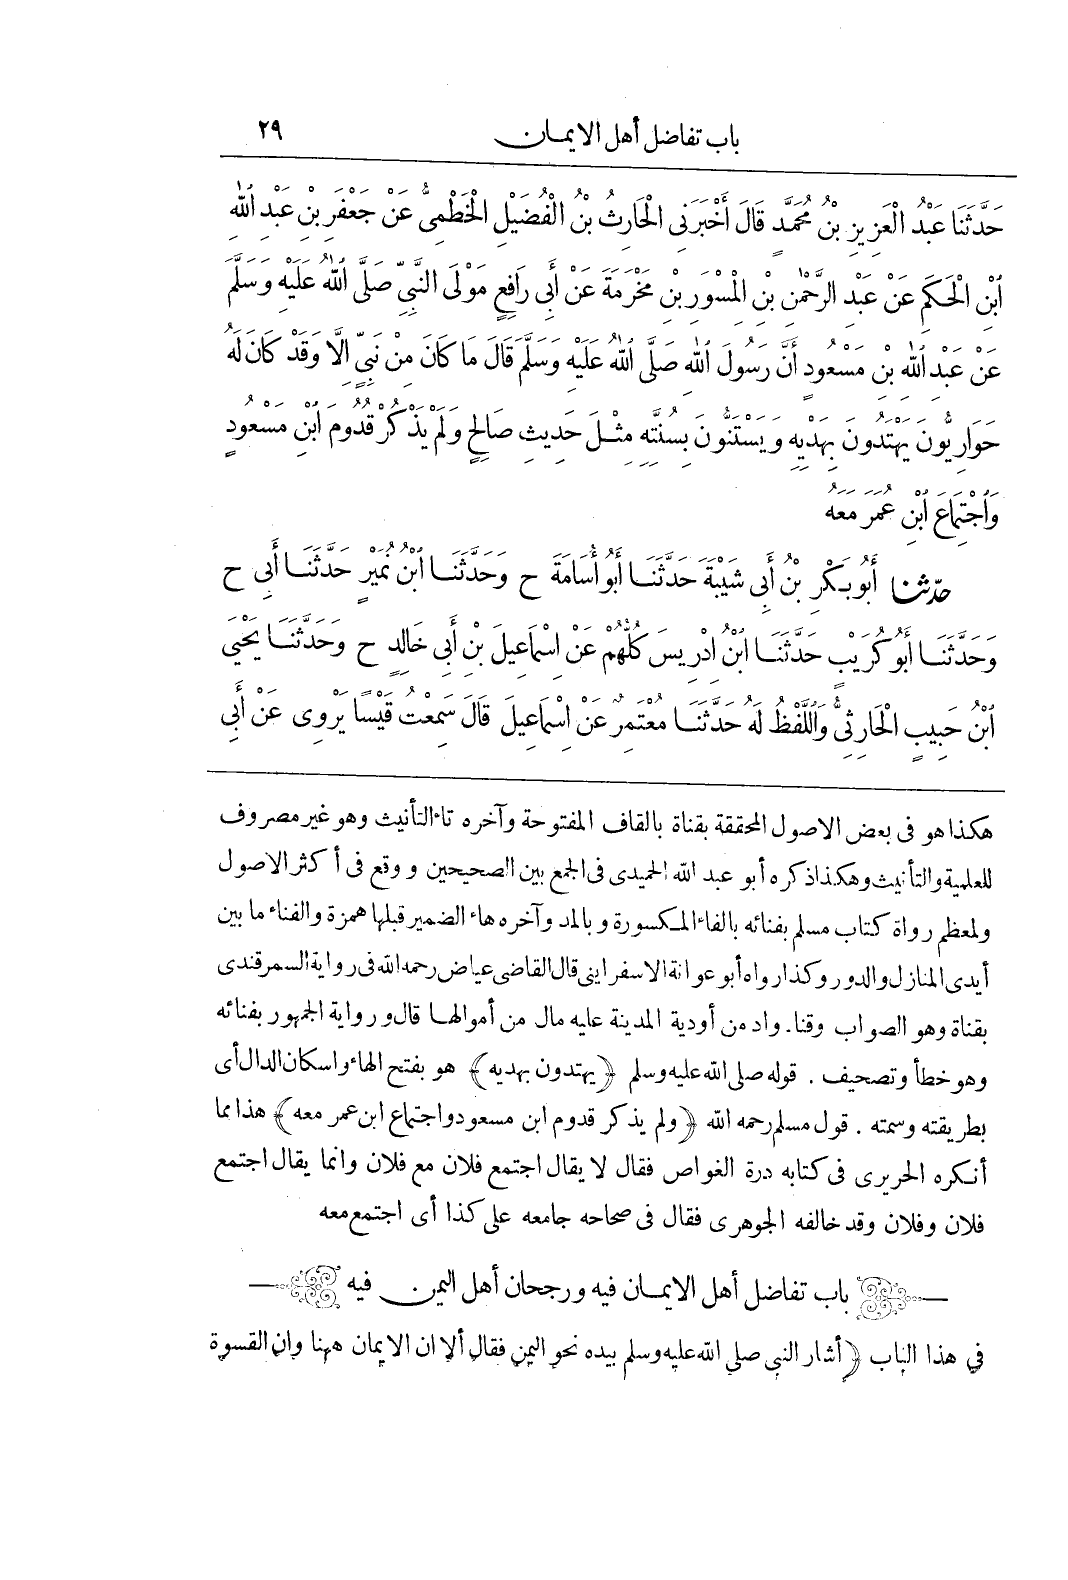 باب تفاضل أهل الايمان ٢٩
حَدَّثَنَا عَبْدُ الْعَزِيزِ بْنُ مُحَمَّدٍ قَالَ أَخْبَرَنِى الْحَارِثُ بْنُ الْفُضَيْلِ الْخَطْمِىُّ عَنْ جَعْفَرِ بْنِ عَبْدِ اللهِ
ابْنِ الْحَكَمِ عَنْ عَبْدِ الرَّحْمٰنِ بْنِ الْمِسْوَرِ بْنِ مَخْرَمَةَ عَنْ أَبِى رَافِعٍ مَوْلَى النَّبِىِّ صَلَّى اللهُ عَلَيْهِ وَسَلَّمَ
عَنْ عَبْدِ اللهِ بْنِ مَسْعُودٍ أَنَّ رَسُولَ اللهِ صَلَّى اللهُ عَلَيْهِ وَسَلَّمَ قَالَ مَا كَانَ مِنْ نَبِىٍّ إِلَّا وَقَدْ كَانَ لَهُ
حَوَارِيُّونَ يَهْتَدُونَ بِهَدْيِهِ وَيَسْتَنُّونَ بِسُنَّتِهِ مِثْلَ حَدِيثِ صَالِحٍ وَلَمْ يَذْكُرْ قُدُومَ ابْنِ مَسْعُودٍ
وَاجْتِمَاعَ ابْنِ عُمَرَ مَعَهُ
حدّثنا أَبُو بَكْرِ بْنُ أَبِى شَيْبَةَ حَدَّثَنَا أَبُو أُسَامَةَ ح وَحَدَّثَنَا ابْنُ نُمَيْرٍ حَدَّثَنَا أَبِى ح
وَحَدَّثَنَا أَبُو كُرَيْبٍ حَدَّثَنَا ابْنُ إِدْرِيسَ كُلُّهُمْ عَنْ إِسْمَاعِيلَ بْنِ أَبِى خَالِدٍ ح وَحَدَّثَنَا يَحْيَى
ابْنُ حَبِيبٍ الْحَارِثِىُّ وَاللَّفْظُ لَهُ حَدَّثَنَا مُعْتَمِرٌ عَنْ إِسْمَاعِيلَ قَالَ سَمِعْتُ قَيْسًا يَرْوِى عَنْ أَبِى
هكذا هو فى بعض الاصول المحققة بقناة بالقاف المفتوحة وآخره تاء التأنيث وهو غير مصروف
للعلمية والتأنيث وهكذا ذكره أبو عبد الله الحميدى فى الجمع بين الصحيحين ووقع فى أكثر الاصول
ولمعظم رواة كتاب مسلم بفنائه بالفاء المكسورة وبالمد وآخره هاء الضمير قبلها همزة والفناء ما بين
أيدى المنازل والدور وكذا رواه أبو عوانة الاسفراينى قال القاضى عياض رحمه الله فى رواية السمرقندى
بقناة وهو الصواب وقناة واد من أودية المدينة عليه مال من أموالها قال ورواية الجمهور بفنائه
وهو خطأ وتصحيف . قوله صلى الله عليه وسلم ﴿يهتدون بهديه﴾ هو بفتح الهاء واسكان الدال أى
بطريقته وسمته . قول مسلم رحمه الله ﴿ولم يذكر قدوم ابن مسعود واجتماع ابن عمر معه﴾ هذا مما
أنكره الحريرى فى كتابه درة الغواص فقال لا يقال اجتمع فلان مع فلان وانما يقال اجتمع
فلان وفلان وقد خالفه الجوهرى فقال فى صحاحه جامعه على كذا أى اجتمع معه
باب تفاضل أهل الايمان فيه ورجحان أهل اليمن فيه
فى هذا الباب ﴿أشار النبى صلى الله عليه وسلم بيده نحو اليمن فقال ألا ان الايمان ههنا وان القسوة